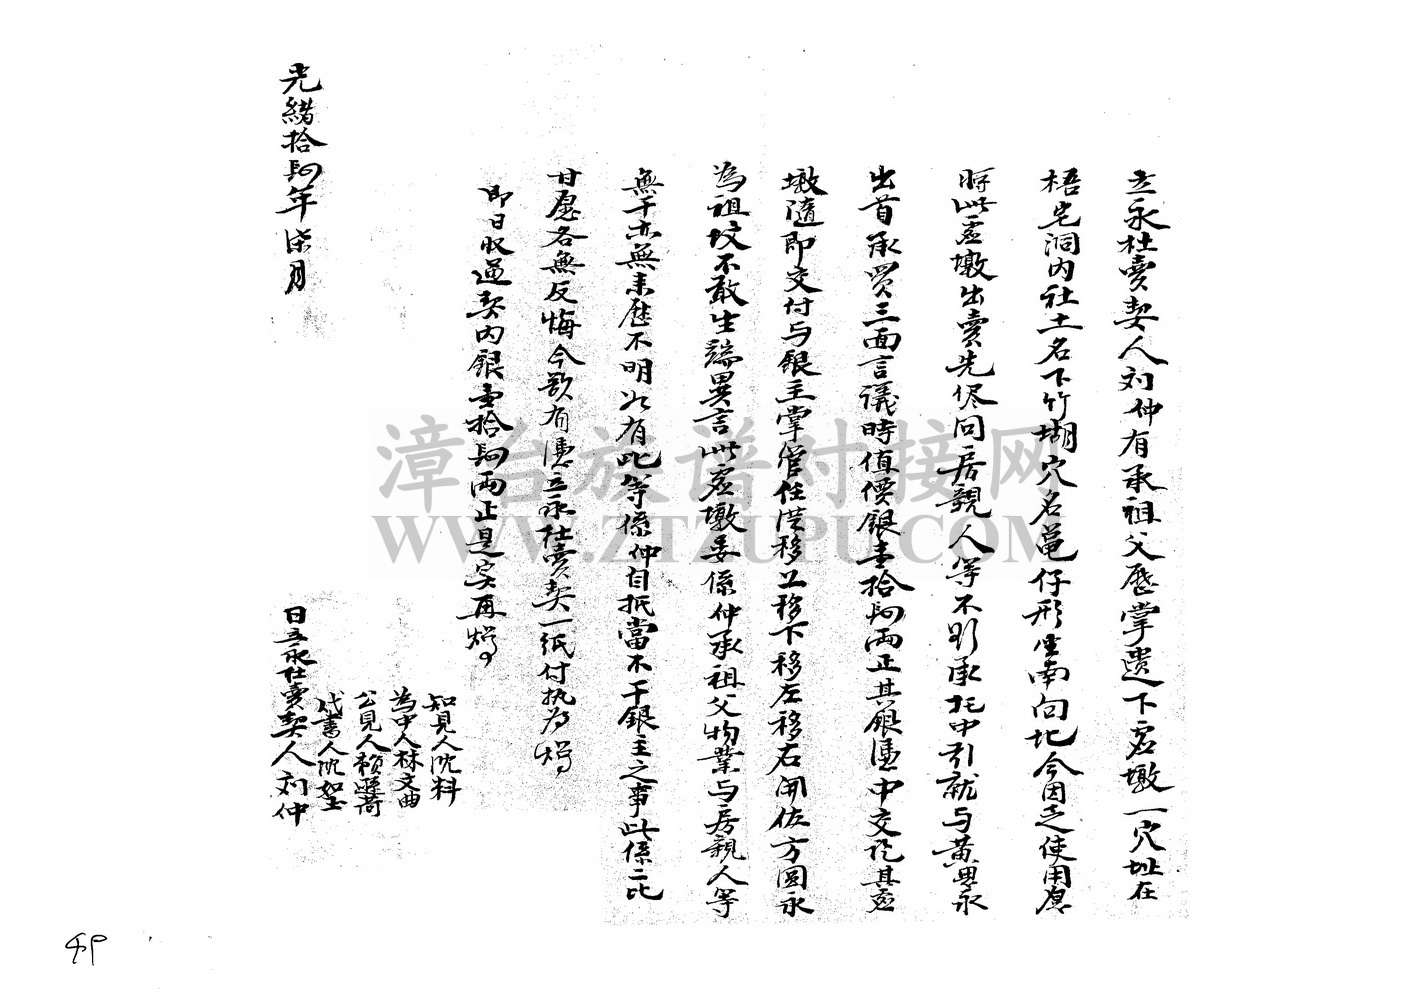 立永杜賣契人刘仲有承祖父歷掌遗下虛墩一穴址在
梧宅洞内社土名下竹塘穴名黾仔形坐南向北今因乏使用愿
將此虛墩出賣先侭问房親人等不能承托中引就与黄思永
出首承買三面言議時值價銀壹拾肆両正其銀憑中交訖其虛
墩隨即交付与銀主掌管任從移上移下移左移右開佐方圓永
為祖坟不敢生端異言此虛墩委係仲承祖父物業与房親人等
無干亦無来歷不明如有此等係仲自抵當不干銀主之事此係二比
甘愿各無反悔今欲有憑立永杜賣契一纸付执為炤
即日收過契内銀壹拾肆両正是实再炤
光緒拾肆年柒月
日立永杜賣契人刘仲
知見人沈料
為中人林文曲
公見人賴遜荷
代書人沈如玉
漳台族谱对接网
WWW.ZTZUPU.COM
49